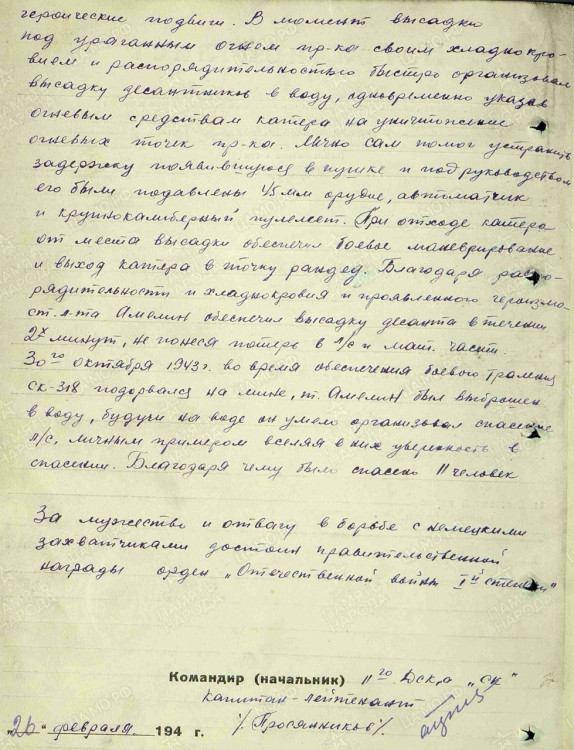 героические подвиги. В момент высадки
под ураганным огнем пр-ка своим хладнокро-
вием и распорядительностью быстро организовал
высадку десантников в воду, одновременно указав
огневым средствам катера на уничтожение
огневых точек пр-ка. Лично сам помог устранить
задержку появившуюся в пушке и под руководством
его были подавлены 45 мм орудие, автоматчик
и крупнокалиберный пулемет. При отходе катера
от места высадки обеспечил боевое маневрирование
и выход катера в точку рандеву. Благодаря распо-
рядительности и хладнокровия и проявленного героизма
ст. л-та Амелин обеспечил высадку десанта в течении
2х минут, не понеся потерь в л/с и мат. части.
30го октября 1943г. во время обеспечения боевого траления
СК-318 подорвался на мине, т. Амелин был выброшен
в воду, будучи на воде он умело организовал спасение
л/с, личным примером вселяя в них уверенность в
спасении. Благодаря чему было спасено 11 человек
За мужество и отвагу в борьбе с немецкими
захватчиками достоин правительственной
награды орден „Отечественной войны Iй степени"
Командир (начальник) 11го Дск-а „СК"
капитан-лейтенант
/Просянников/.
„26" февраля 194 г.